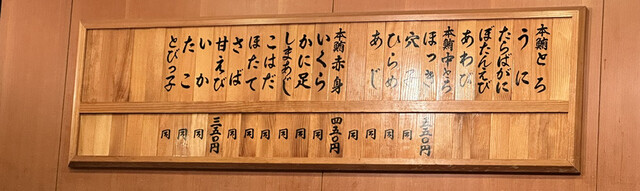 本鮪とろ
うに
たらばがに
ぼたんえび
あわび
本鮪中とろ
ほっき
穴子
ひらめ
あじ
本鮪赤身
いくら
かに足
しまあじ
こはだ
ほたて
さば
甘えび
いか
たこ
とびっ子
五五〇円
同
同
同
同
四五〇円
同
同
同
同
同
同
三五〇円
同
同
同